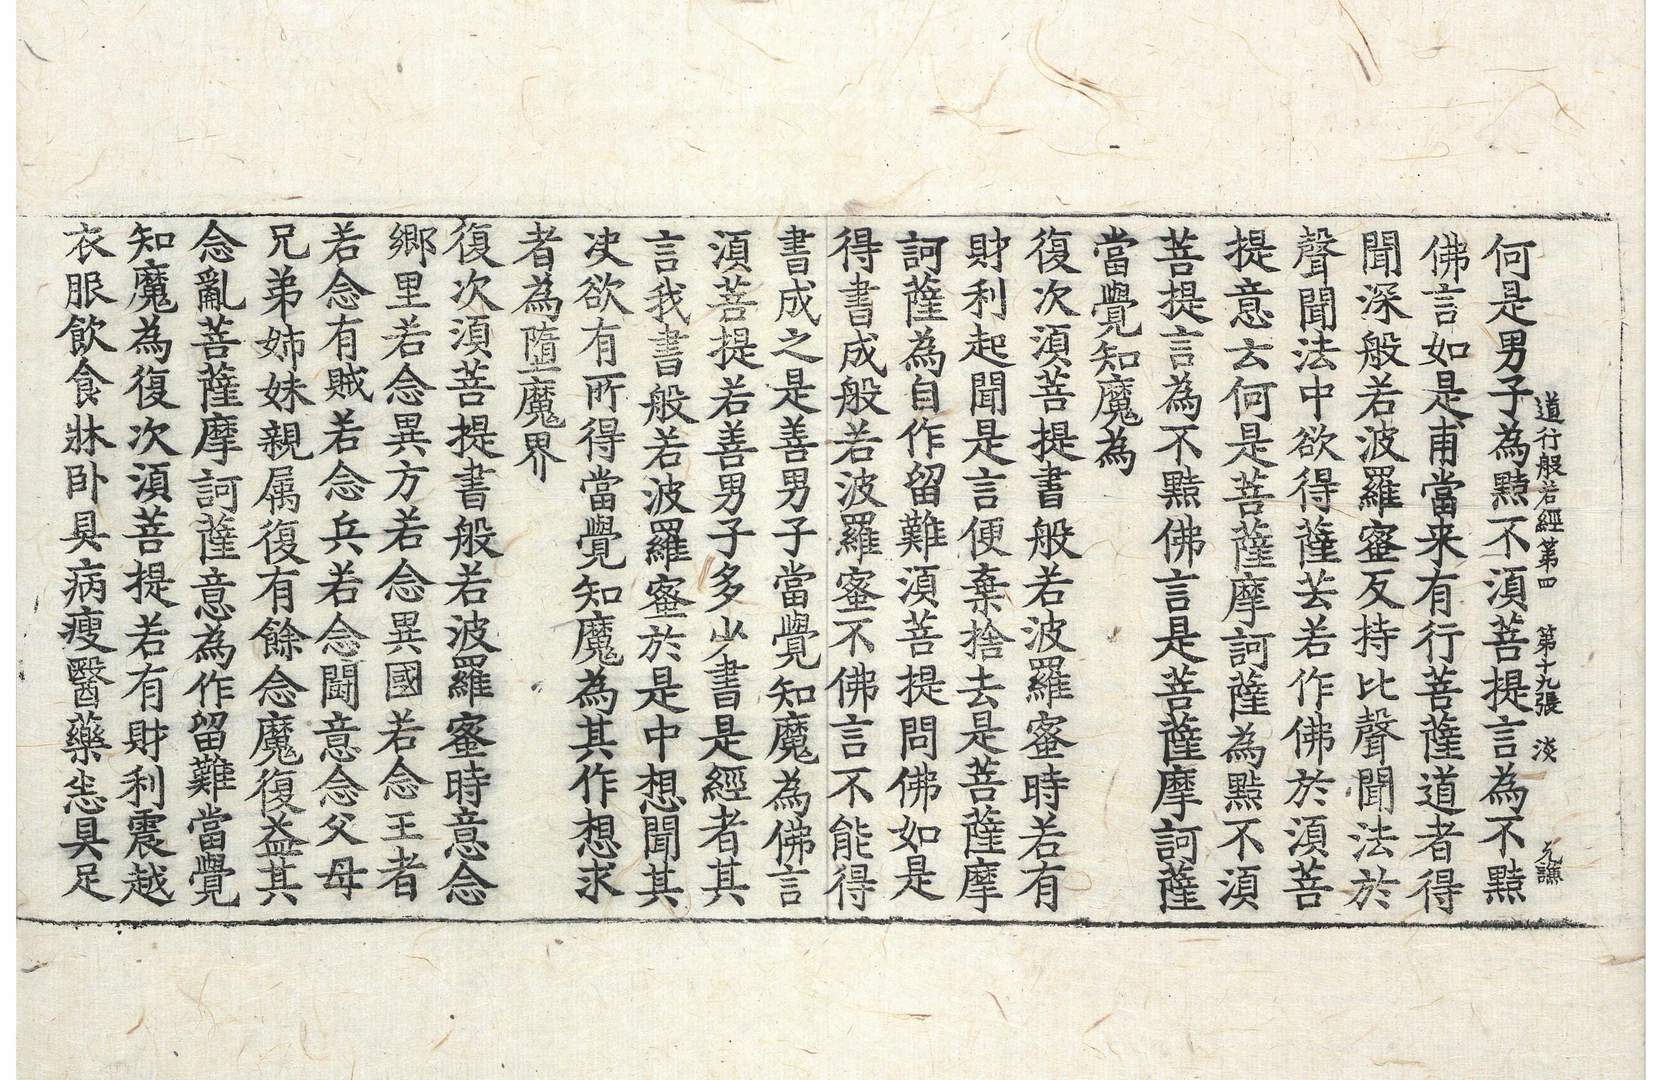 道行般若經第四 第十九張 淡 元謙
何是男子為黠不須菩提言為不黠
佛言如是甫當来有行菩薩道者得
聞深般若波羅蜜反持比聲聞法於
聲聞法中欲得薩芸若作佛於須菩
提意云何是菩薩摩訶薩為黠不須
菩提言為不黠佛言是菩薩摩訶薩
當覺知魔為
復次須菩提書般若波羅蜜時若有
財利起聞是言便棄捨去是菩薩摩
訶薩為自作留難須菩提問佛如是
得書成般若波羅蜜不佛言不能得
書成之是善男子當覺知魔為佛言
須菩提若善男子多少書是經者其
言我書般若波羅蜜於是中想聞其
决欲有所得當覺知魔為其作想求
者為墮魔界
復次須菩提書般若波羅蜜時意念
鄉里若念異方若念異國若念王者
若念有賊若念兵若念鬪意念父母
兄弟姉妹親属復有餘念魔復益其
念亂菩薩摩訶薩意為作留難當覺
知魔為復次須菩提若有財利震越
衣服飲食牀卧具病瘦醫藥悉具足